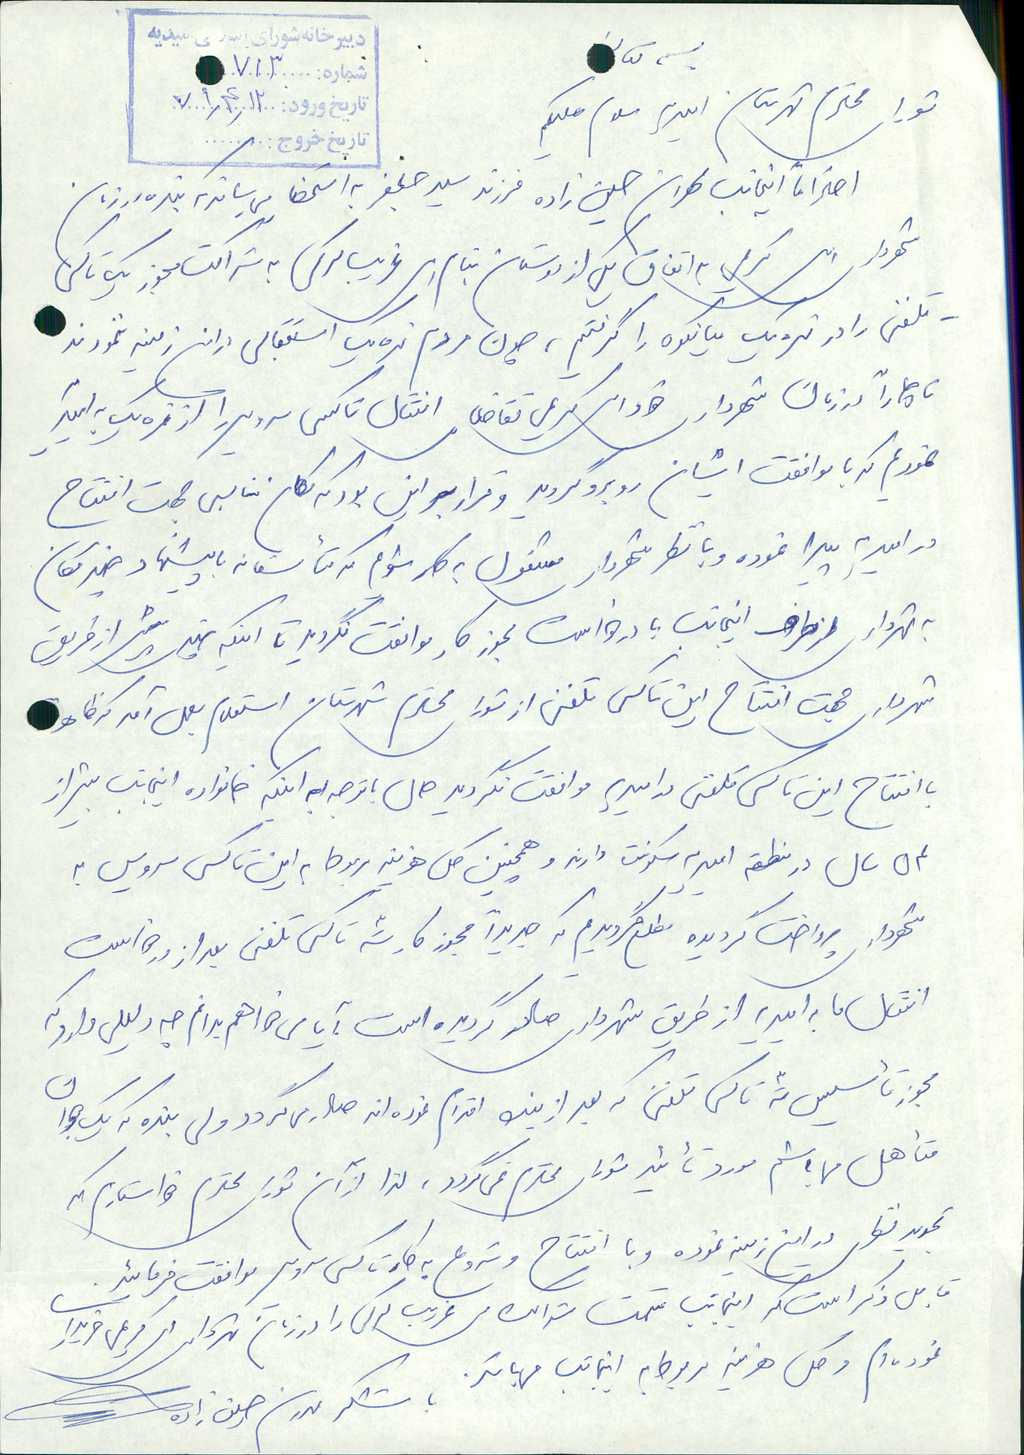 دبیرخانه شورای
شماره: ۷۱۳
تاریخ ورود:
تاریخ خروج:
بسمه تعالی
شورای محترم شهرستان امیدیه سلام علیکم
احتراماً اینجانب حسین زاده فرزند سید به استحضار میرساند که بنده در زمان
شهردار آقای کرمی به اتفاق یکی از دوستان بنام آقای غریب به شراکت مجوز یک تاکسی
تلفنی را در میانکوه را گرفتیم ، چون مردم استقبالی در این زمینه ننمودند
ناچاراً در زمان شهردار تقاضای انتقال تاکسی سرویس را از به امیدیه
نمودیم که با موافقت ایشان روبرو گردید و قرار بر این بود که مکان مناسبی جهت افتتاح
در امیدیه پیدا نموده و با نظر شهردار مشغول به کار شوم که متأسفانه با پیشنهاد چندین مکان
به شهردار از طرف اینجانب با درخواست مجوز کار موافقت نگردید تا اینکه چندی پیش از طریق
شهرداری جهت افتتاح این تاکسی تلفنی از شورای محترم شهرستان استعلام بعمل آمد که ظاهراً
با افتتاح این تاکسی تلفنی در امیدیه موافقت نگردید حال با توجه به اینکه خانواده اینجانب بیش از
سال در منطقه امیدیه سکونت دارند و همچنین کل هزینه مربوط به این تاکسی سرویس به
شهرداری پرداخت گردیده مطلع گردیدم که جدیداً مجوز کار سه تاکسی تلفنی بعد از درخواست
انتقال ما به امیدیه از طریق شهرداری صادر گردیده است می خواهم بدانم چه دلیلی دارد که
مجوز تأسیس سه تاکسی تلفنی که بعد از بنده اقدام نموده اند صادر می گردد ولی بنده که یک جوان
متأهل میباشم مورد تأئید شورای محترم نمی گردد ، لذا از آن شورای محترم خواستارم که
تجدید نظری در این زمینه نموده و با افتتاح و شروع به کار تاکسی سرویس موافقت فرمائید .
قابل ذکر است که اینجانب قسمت شراکت غریب را در زمان شهرداری آقای کرمی خریداری
نموده ام و کل هزینه مربوط به اینجانب میباشد .
با تشکر حسین زاده